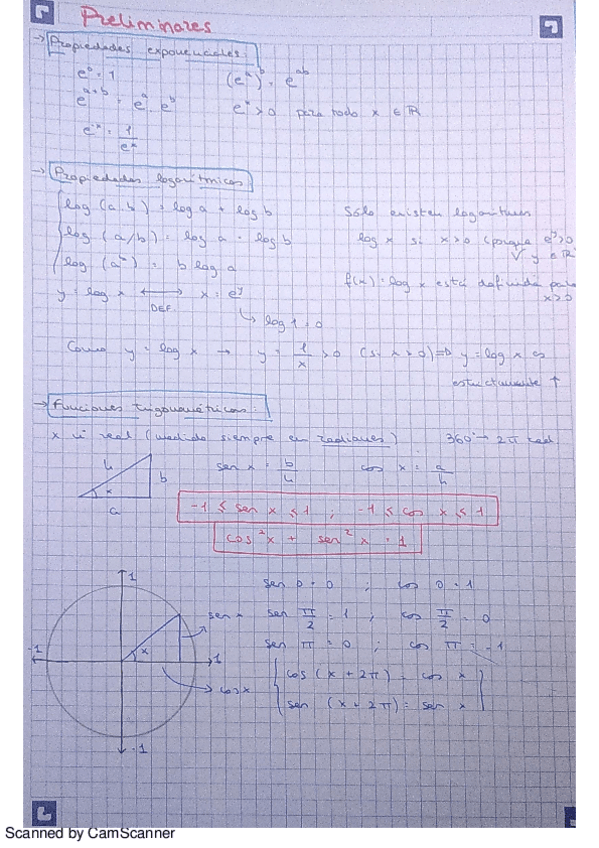 Preliminares
→ Propiedades exponenciales:
e⁰ = 1 (eᵃ)ᵇ = eᵃᵇ
eᵃ⁺ᵇ = eᵃ · eᵇ eˣ > 0 para todo x ∈ ℝ
e⁻ˣ = 1/eˣ
→ Propiedades logarítmicas
log (a·b) = log a + log b Sólo existen logaritmos
log (a/b) = log a - log b log x si x > 0 (porque eʸ > 0 ∀ y ∈ ℝ
log (aᵇ) = b log a f(x) = log x está definida para x > 0
y = log x ⟷ x = eʸ
DEF.
↳ log 1 = 0
Como y = log x → y' = 1/x > 0 (si x > 0) ⇒ y = log x es
estrictamente ↑
→ Funciones trigonométricas:
x nº real (medido siempre en radianes) 360° → 2π rad
h b x a
sen x = b/h cos x = a/h
-1 ≤ sen x ≤ 1 ; -1 ≤ cos x ≤ 1
cos²x + sen²x = 1
1
sen 0 = 0 ; cos 0 = 1
sen x sen π/2 = 1 ; cos π/2 = 0
-1 x 1 sen π = 0 ; cos π = -1
cos x cos (x + 2π) = cos x
sen (x + 2π) = sen x
-1
Scanned by CamScanner